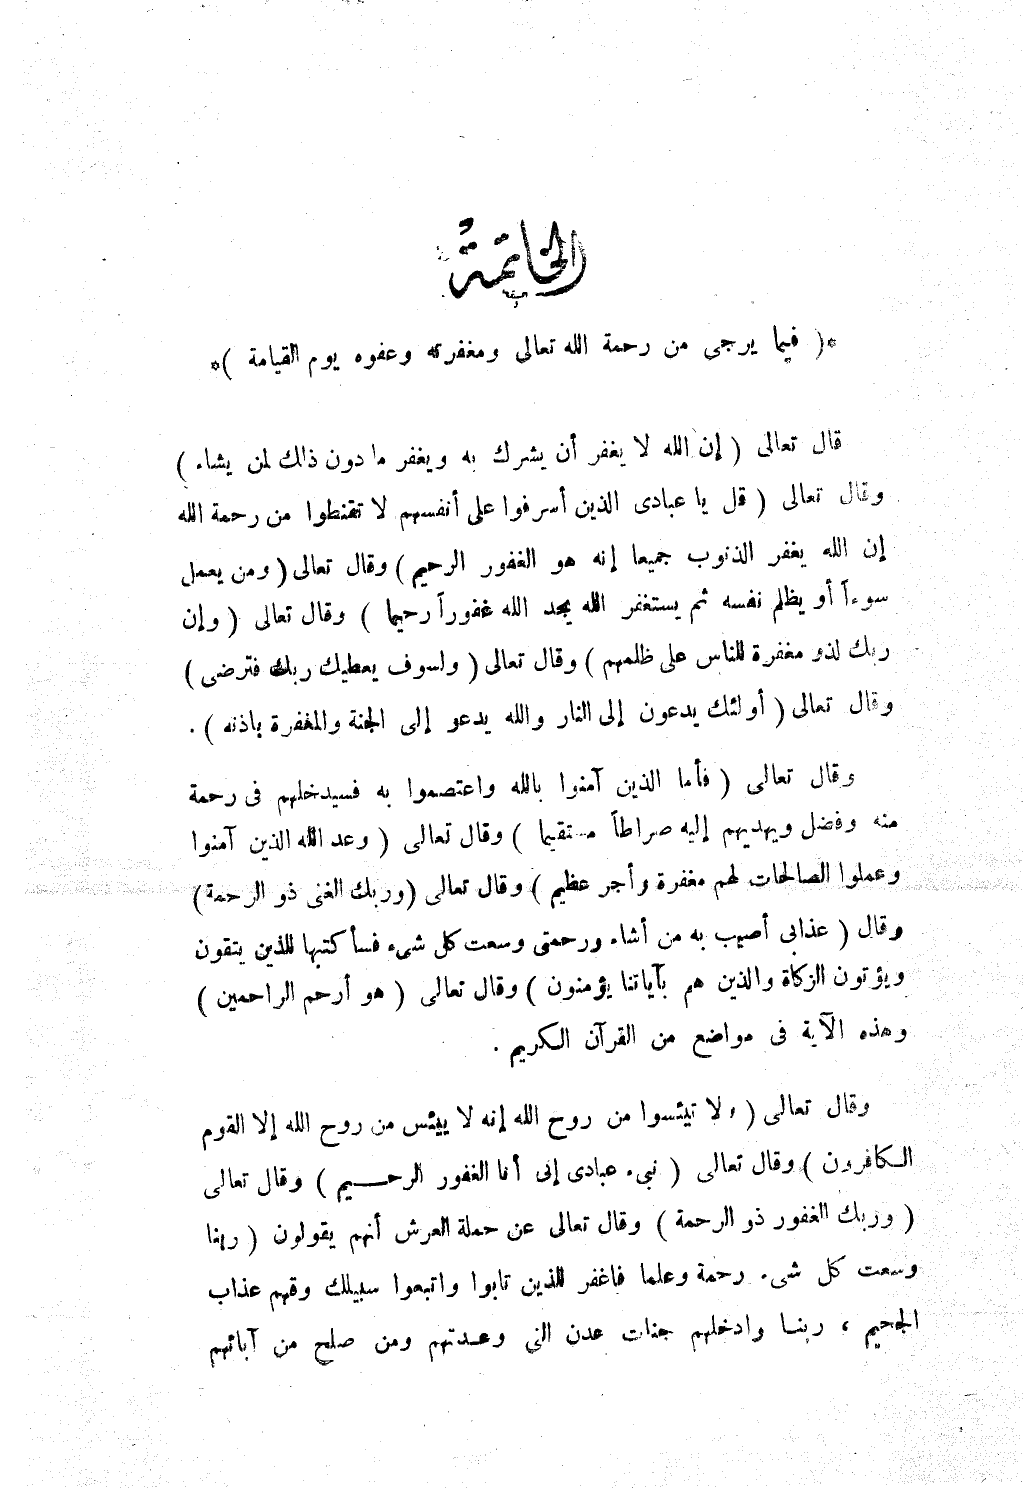 الخاتمة
*( فيما يرجى من رحمة الله تعالى ومغفرته وعفوه يوم القيامة )*
قال تعالى ( إن الله لا يغفر أن يشرك به ويغفر ما دون ذلك لمن يشاء )
وقال تعالى ( قل يا عبادى الذين أسرفوا على أنفسهم لا تقنطوا من رحمة الله
إن الله يغفر الذنوب جميعا إنه هو الغفور الرحيم ) وقال تعالى ( ومن يعمل
سوءاً أو يظلم نفسه ثم يستغفر الله يجد الله غفوراً رحيما ) وقال تعالى ( وإن
ربك لذو مغفرة للناس على ظلمهم ) وقال تعالى ( ولسوف يعطيك ربك فترضى )
وقال تعالى ( أولئك يدعون إلى النار والله يدعو إلى الجنة والمغفرة باذنه ) .
وقال تعالى ( فأما الذين آمنوا بالله واعتصموا به فسيدخلهم فى رحمة
منه وفضل ويهديهم إليه صراطاً مستقيما ) وقال تعالى ( وعد الله الذين آمنوا
وعملوا الصالحات لهم مغفرة وأجر عظيم ) وقال تعالى ( وربك الغنى ذو الرحمة )
وقال ( عذابى أصيب به من أشاء ورحمتى وسعت كل شىء فسأكتبها للذين يتقون
ويؤتون الزكاة والذين هم بآياتنا يؤمنون ) وقال تعالى ( هو أرحم الراحمين )
وهذه الآية فى مواضع من القرآن الكريم .
وقال تعالى ( ولا تيئسوا من روح الله إنه لا ييئس من روح الله إلا القوم
الكافرون ) وقال تعالى ( نبىء عبادى إنى أنا الغفور الرحيم ) وقال تعالى
( وربك الغفور ذو الرحمة ) وقال تعالى عن حملة العرش أنهم يقولون ( ربنا
وسعت كل شىء رحمة وعلما فاغفر للذين تابوا واتبعوا سبيلك وقهم عذاب
الجحيم ، ربنا وادخلهم جنات عدن التي وعدتهم ومن صلح من آبائهم